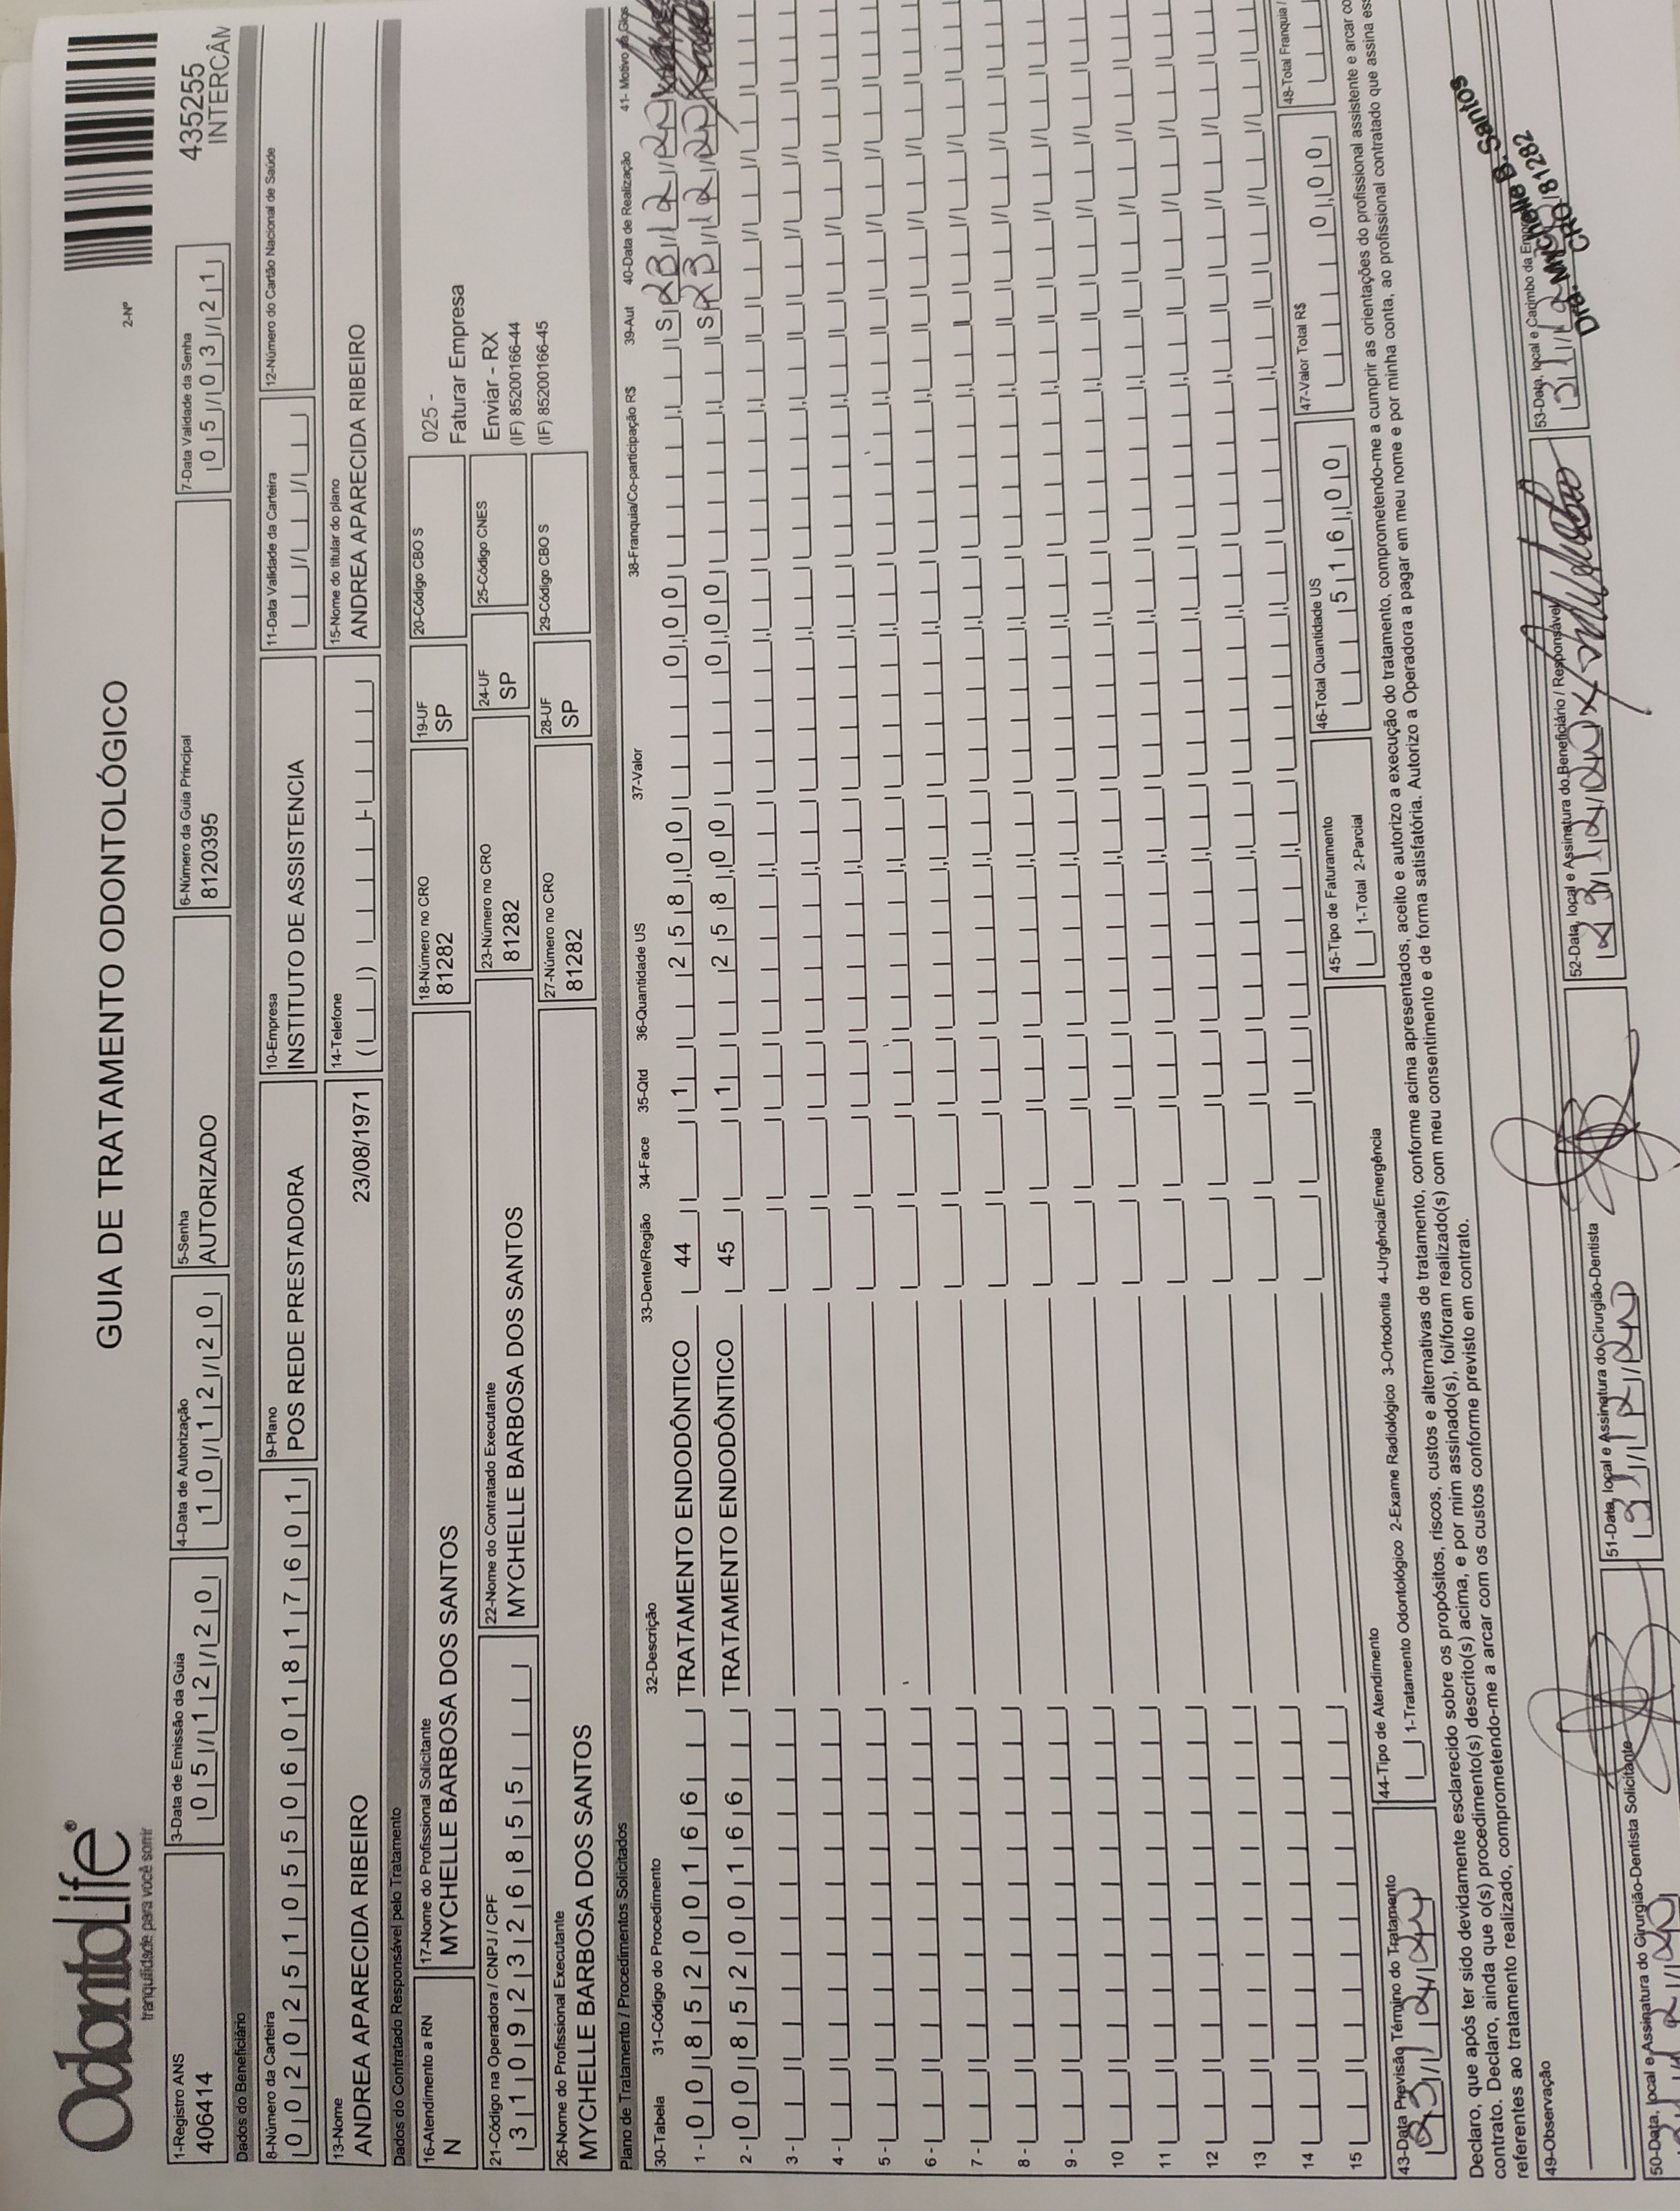 OdontoLife®
tranquilidade para você sorrir
GUIA DE TRATAMENTO ODONTOLÓGICO
2-Nº
435255
INTERCÂM
1-Registro ANS
406414
3-Data de Emissão da Guia
05/12/20
4-Data de Autorização
10/12/20
5-Senha
AUTORIZADO
6-Número da Guia Principal
8120395
7-Data Validade da Senha
05/03/21
Dados do Beneficiário
8-Número da Carteira
00202510550601817601
9-Plano
POS REDE PRESTADORA
10-Empresa
INSTITUTO DE ASSISTENCIA
11-Data Validade da Carteira
12-Número do Cartão Nacional de Saúde
13-Nome
ANDREA APARECIDA RIBEIRO
23/08/1971
14-Telefone
15-Nome do titular do plano
ANDREA APARECIDA RIBEIRO
Dados do Contratado Responsável pelo Tratamento
16-Atendimento a RN
N
17-Nome do Profissional Solicitante
MYCHELLE BARBOSA DOS SANTOS
18-Número no CRO
81282
19-UF
SP
20-Código CBO S
025 -
Faturar Empresa
21-Código na Operadora / CNPJ / CPF
31092326855
22-Nome do Contratado Executante
MYCHELLE BARBOSA DOS SANTOS
23-Número no CRO
81282
24-UF
SP
25-Código CNES
Enviar - RX
(IF) 85200166-44
(IF) 85200166-45
26-Nome do Profissional Executante
MYCHELLE BARBOSA DOS SANTOS
27-Número no CRO
81282
28-UF
SP
29-Código CBO S
Plano de Tratamento / Procedimentos Solicitados
30-Tabela 31-Código do Procedimento 32-Descrição 33-Dente/Região 34-Face 35-Qtd 36-Quantidade US 37-Valor 38-Franquia/Co-participação R$ 39-Aut 40-Data de Realização 41- Motivo da Glosa
1 - 00 85200166 TRATAMENTO ENDODÔNTICO 44 1 258,00 0,00 S 23/12/20
2 - 00 85200166 TRATAMENTO ENDODÔNTICO 45 1 258,00 0,00 S 23/12/20
3 -
4 -
5 -
6 -
7 -
8 -
9 -
10
11
12
13
14
15
43-Data Previsão Término do Tratamento
44-Tipo de Atendimento
1-Tratamento Odontológico 2-Exame Radiológico 3-Ortodontia 4-Urgência/Emergência
45-Tipo de Faturamento
1-Total 2-Parcial
46-Total Quantidade US
516,00
47-Valor Total R$
0,00
48-Total Franquia /
Declaro, que após ter sido devidamente esclarecido sobre os propósitos, riscos, custos e alternativas de tratamento, conforme acima apresentados, aceito e autorizo a execução do tratamento, comprometendo-me a cumprir as orientações do profissional assistente e arcar co
contrato. Declaro, ainda que o(s) procedimento(s) descrito(s) acima, e por mim assinado(s), foi/foram realizado(s) com meu consentimento e de forma satisfatória. Autorizo a Operadora a pagar em meu nome e por minha conta, ao profissional contratado que assina es
referentes ao tratamento realizado, comprometendo-me a arcar com os custos conforme previsto em contrato.
49-Observação
50-Data, local e Assinatura do Cirurgião-Dentista Solicitante
51-Data, local e Assinatura do Cirurgião-Dentista
52-Data, local e Assinatura do Beneficiário / Responsável
53-Data, local e Carimbo da
Dra. Mychelle B. Santos
CRO 81282